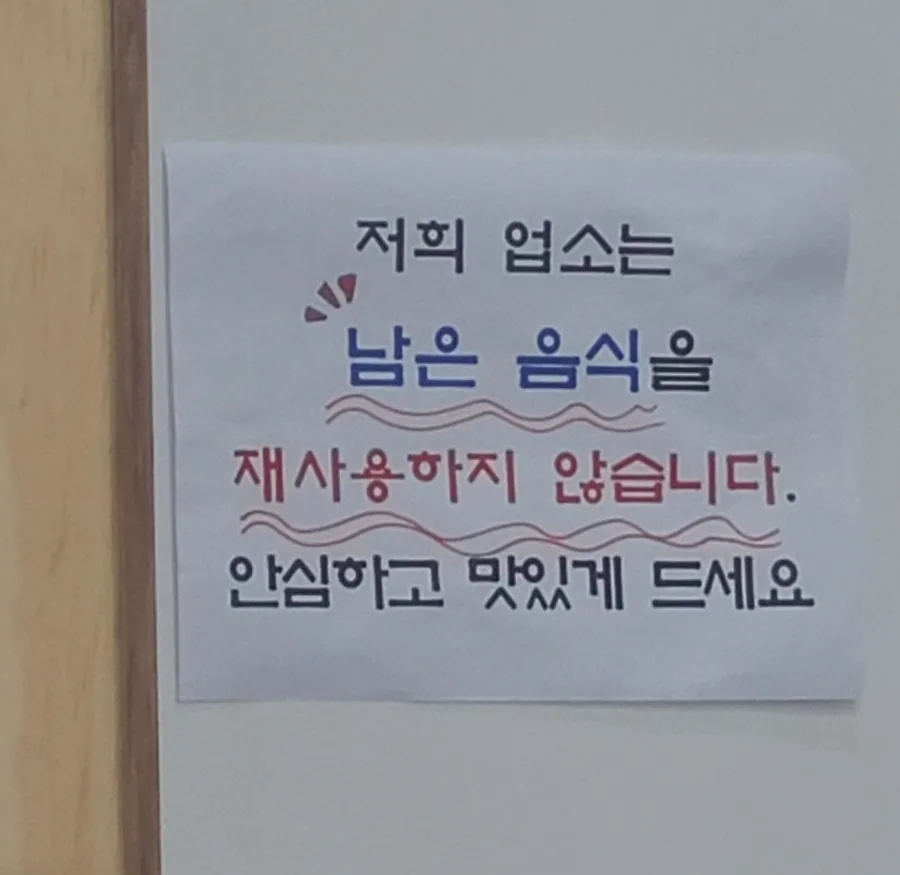 저희 업소는
남은 음식을
재사용하지 않습니다.
안심하고 맛있게 드세요